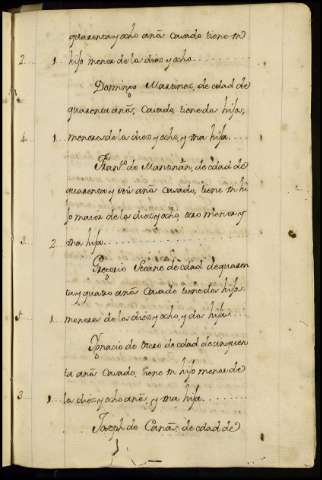 quarenta y ocho anãs, casado tiene un
2 . . 1 . hijo menor de los dies y ocho . . . . . . .
Domingo Martines, de edad de
quarenta anãs, Casado, tiene dos hijos,
4 . . 1 . menores de los dies y ocho, y una hija . . .
Fran.co de de edad de
quarenta y seis anãs casado, tiene un hi
jo maior de los dies y ocho, otro menor y
3 . . 2 una hija . . . . . . . . . . .
Gregorio de edad de quaren
ta y quatro anãs casado tiene dos hijos
1 . menores de los dies y ocho, y dos hijas . . .
Ygnacio de de edad de cinquen
ta anãs Casado, tiene un hijo menor de
3 . . 1 . los dies y ocho anãs, y una hija . . . .
Joseph de de edad de